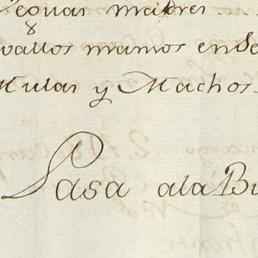 Yeguas madres
8
vallos mansos en Se
Mulas y Machos.
Pasa ala Bu